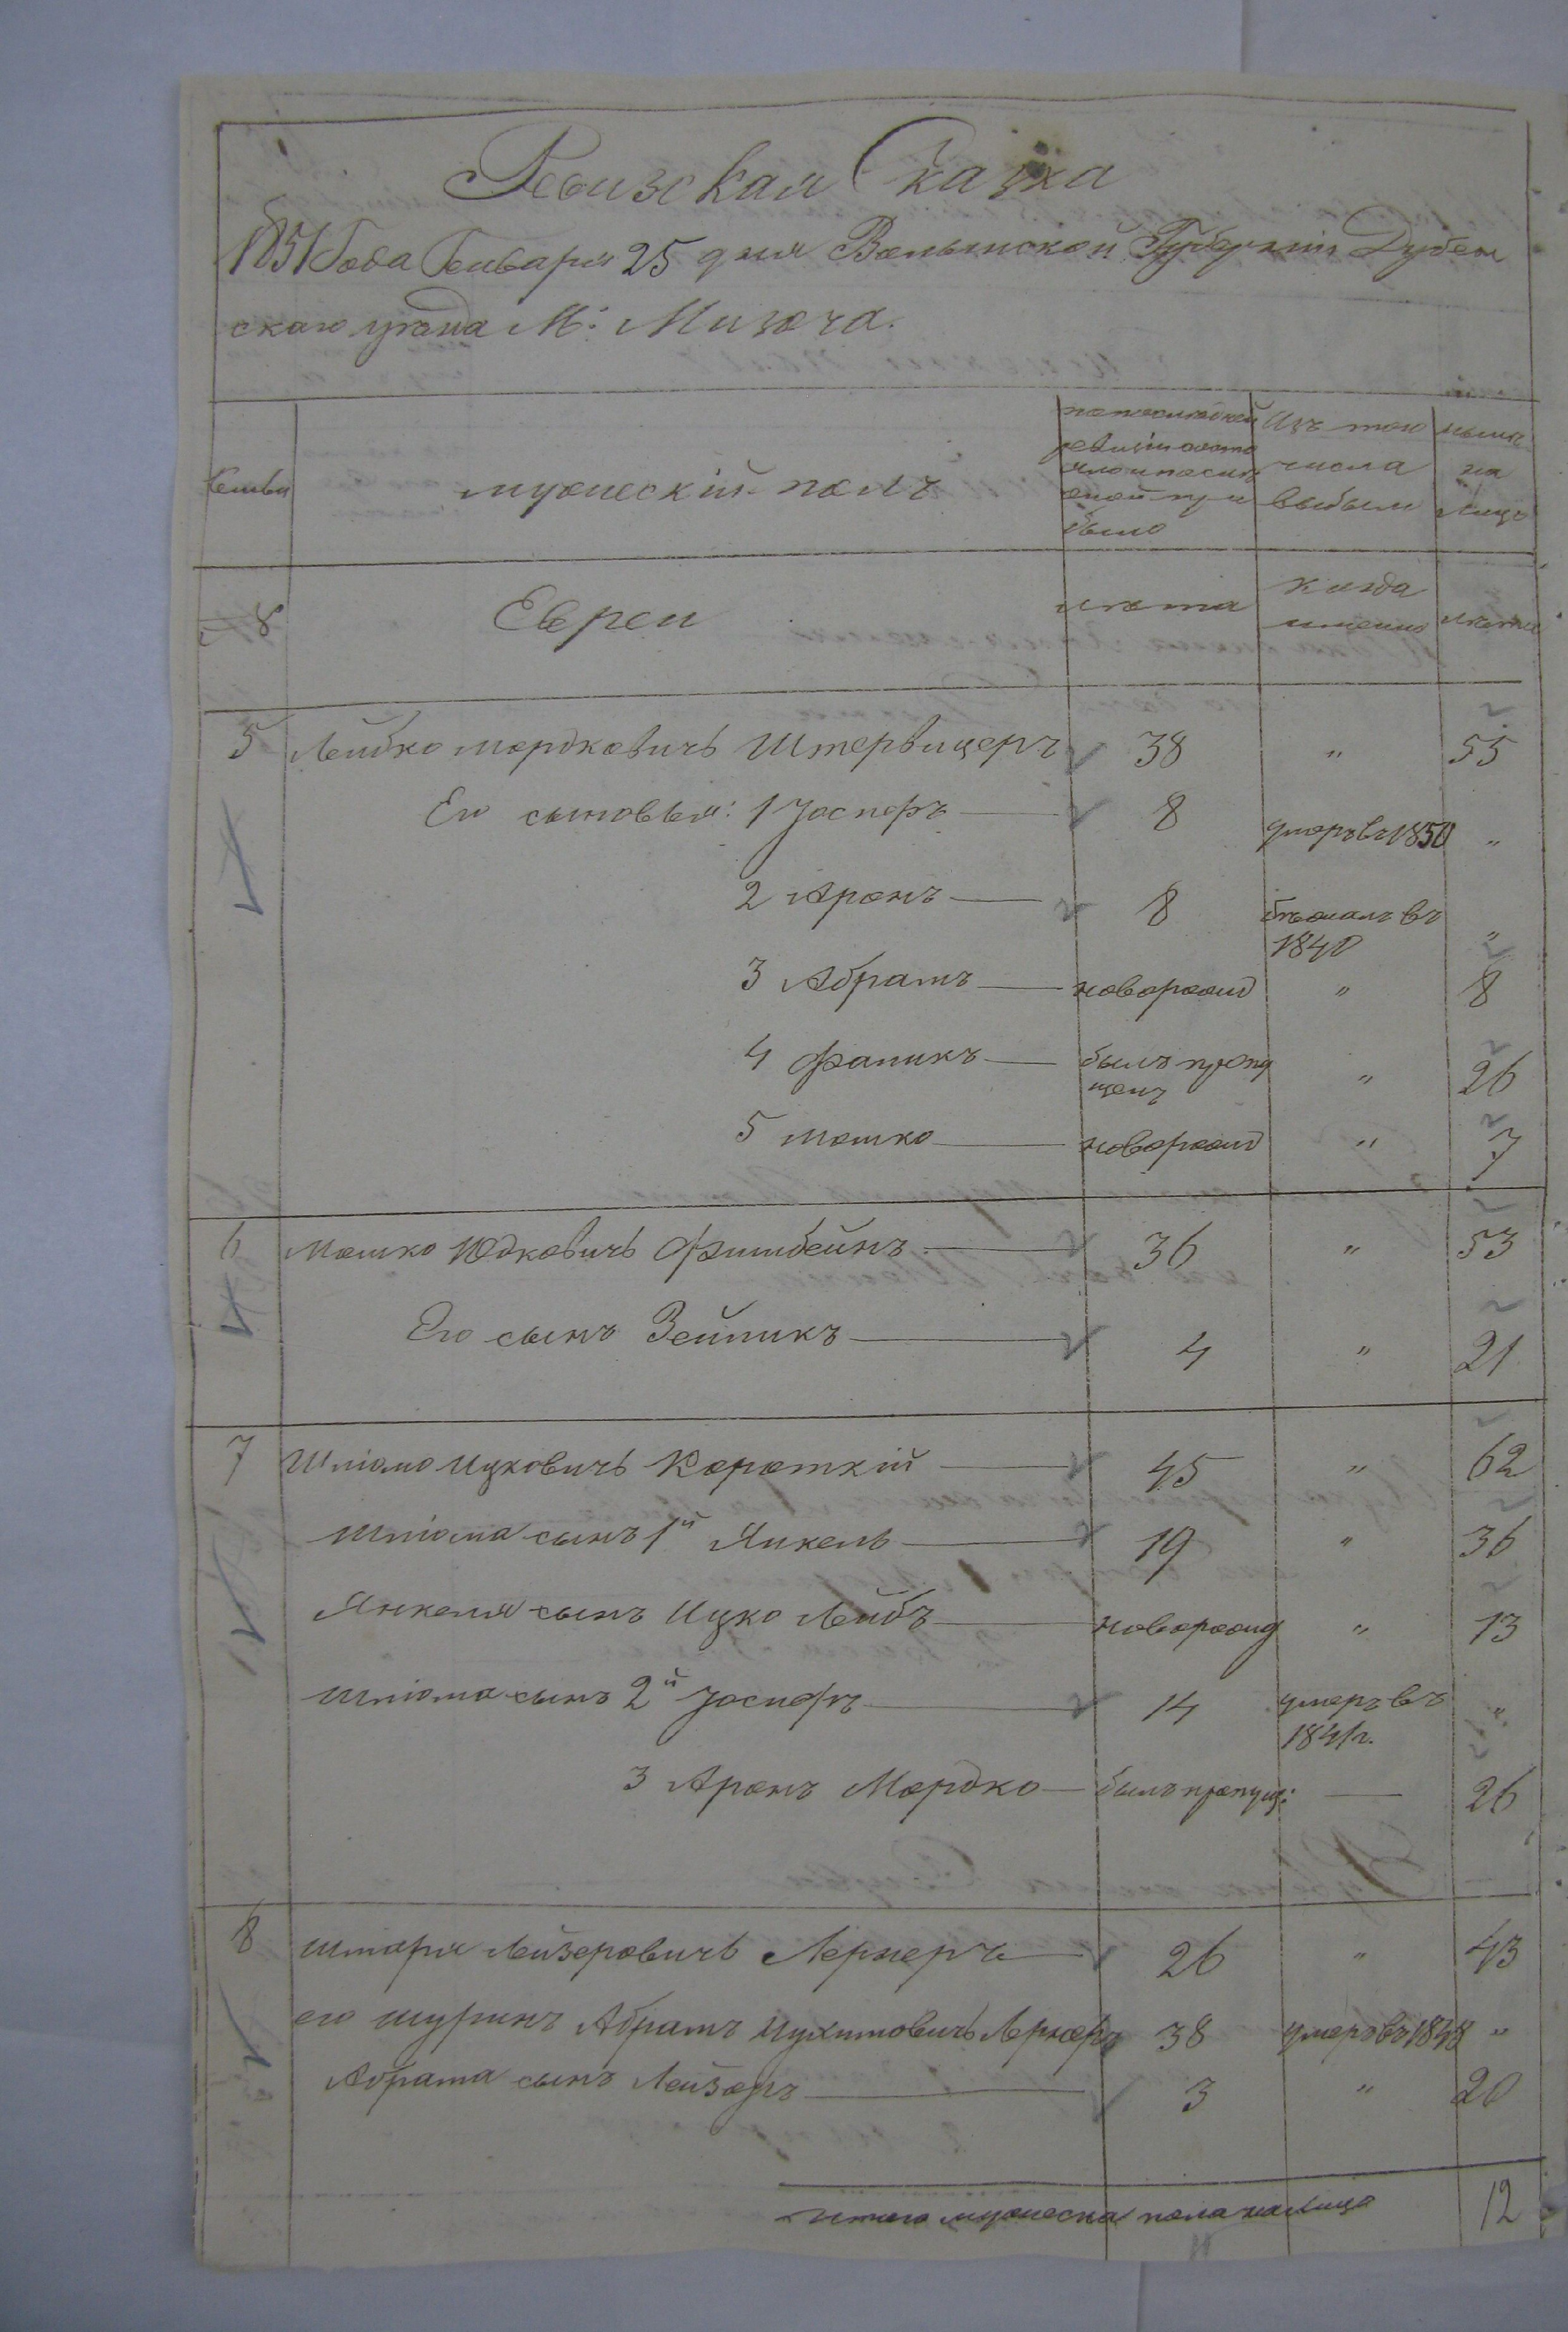 Ревизская Сказка
1851 Года Генваря 25 дня Волынской Губерніи Дубен
скаго уезда М: Мизоча.
Семьи
мужескій полъ
по последней
ревизіи состо
яло и после
оной при
было
Изъ того
числа
выбыли
ныне
на
лицо
№
Евреи
лета
когда
именно
лета
5 Лейбко Мордковичъ Штервицеръ 38 " 55
Его сыновья: 1 Іосифъ 8 умеръ въ 1850 "
2 Аронъ 8 бежалъ въ
1840 "
3 Абрамъ новорожд " 8
4 Файшикъ былъ пропу
щенъ " 26
5 Мошко новорожд " 7
6 Мошко Юдковичъ Фишбейнъ 36 " 53
Его сынъ Зейликъ 4 " 21
7 Шліома Ицковичъ Короткій 45 " 62
Шліома сынъ 1й Янкель 19 " 36
Янкеля сынъ Ицко Лейбъ новорожд " 13
Шліома сынъ 2й Іосифъ 14 умеръ въ
1841г. "
3 Аронъ Мордко былъ пропущ: — 26
8 Шмаря Лейзеровичъ Лернеръ 26 " 43
его шуринъ Абрамъ Нухимовичъ Лернеръ 38 умеръ въ 1848 "
Абрама сынъ Лейзеръ 3 " 20
Итого мужеска пола на лицо 12